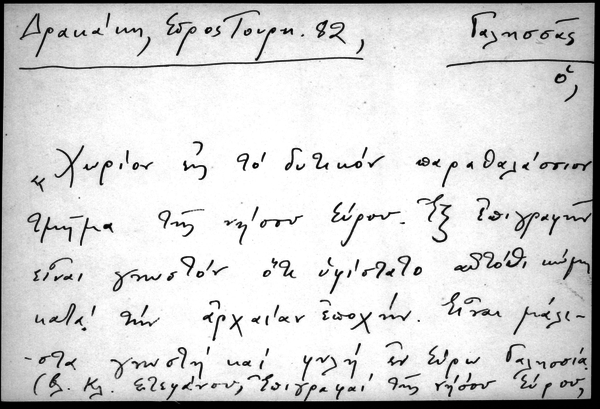 Δρακάκη, Σύρος Τουρκ. 82, Γαλησσᾶς
ὁ,
"Χωρίον εἰς τό δυτικόν παραθαλάσσιον
τμῆμα τῆς νήσου Σύρου. Ἐξ ἐπιγραφῶν
εἶναι γνωστόν ὅτι ὑφίστατο αὐτόθι κώμη
κατά τήν ἀρχαίαν ἐποχήν. Εἶναι μάλι-
-στα γνωστή καί φυλή ἐν Σύρῳ Γαλησσία.
(βλ. Κλ. Στεφάνου, Ἐπιγραφαί τῆς νήσου Σύρου,